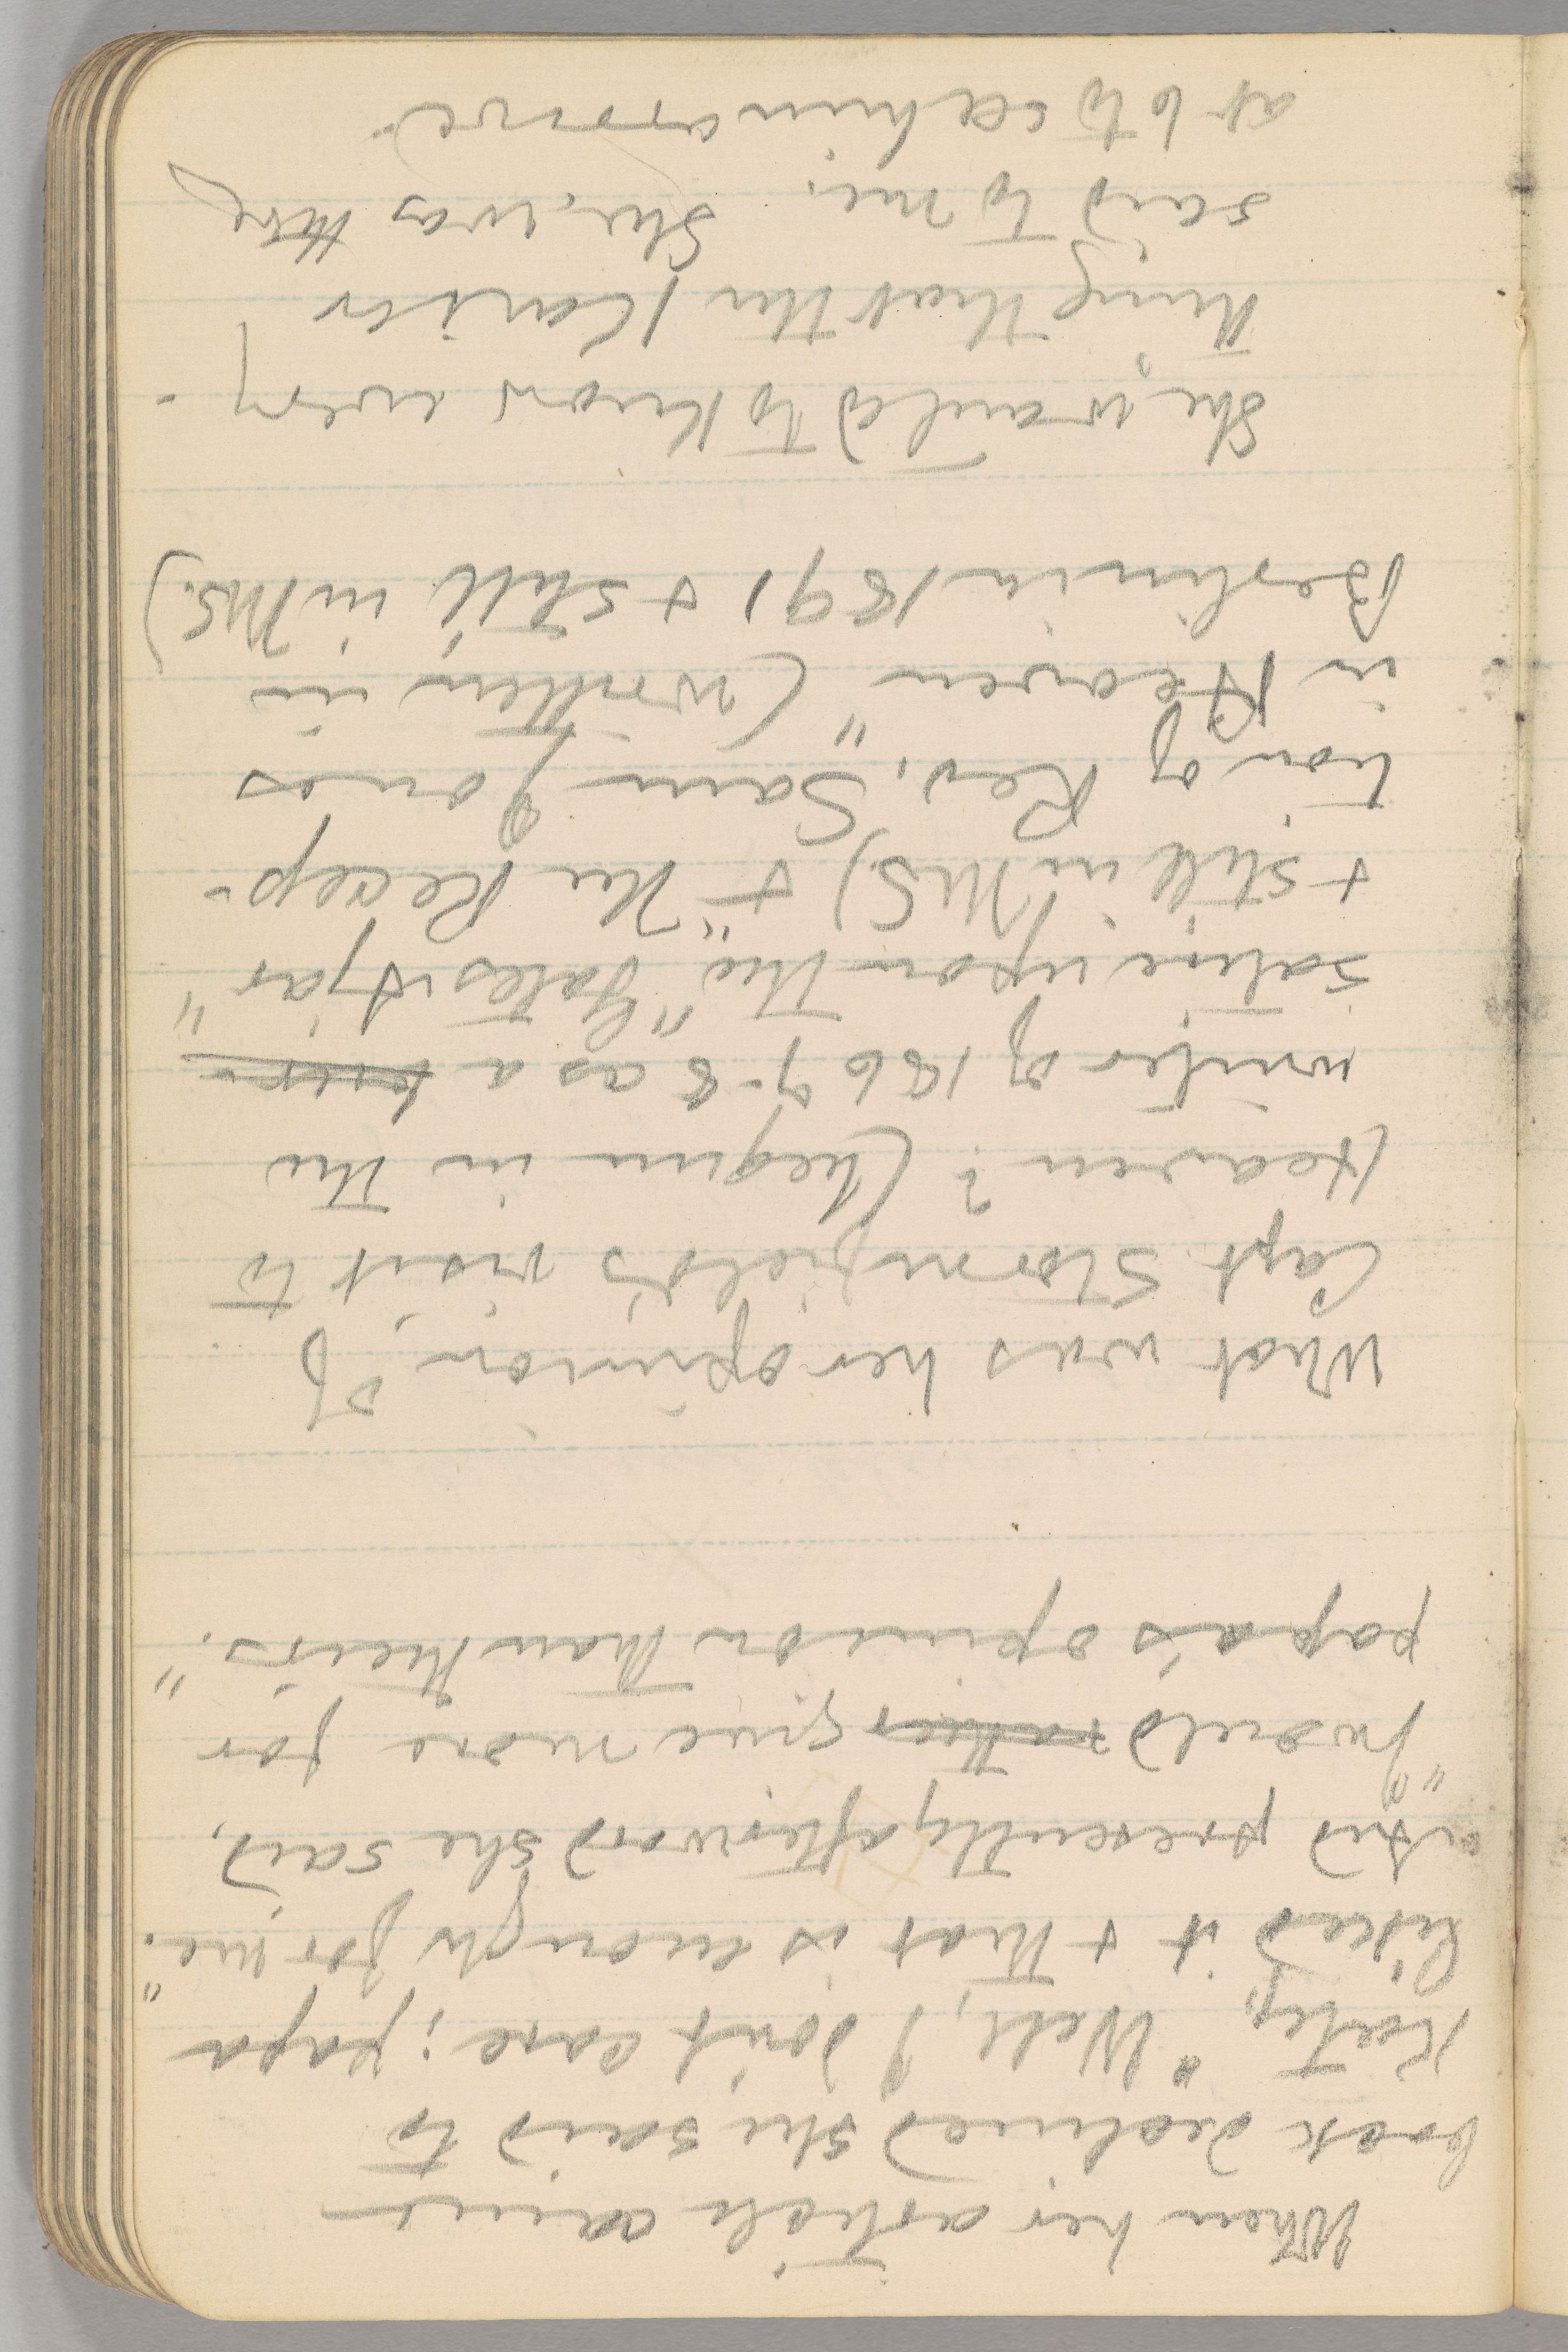 When her article came
back declined she said to
Katy, "Well, I don't care; papa
liked it & that is enough for me."
And presently afterward she said,
"I would rather give more for
papa's opinion than theirs."
What was her opinion of
Capt Stormfield's visit to
Heaven? (begun in the
winter of 1867-8 as a
satire upon the "Gates Ajar"
& still in MS.) & "The Recep-
tion of Rev. Sam Jones
in Heaven" (written in
Berlin in 1891 & still in MS.)
She wanted to know every-
thing that the Kaiser
said to me. She was there
at 6 to see him arrive.